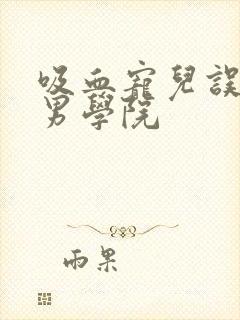 吸血寵兒誤
男學院
雨果